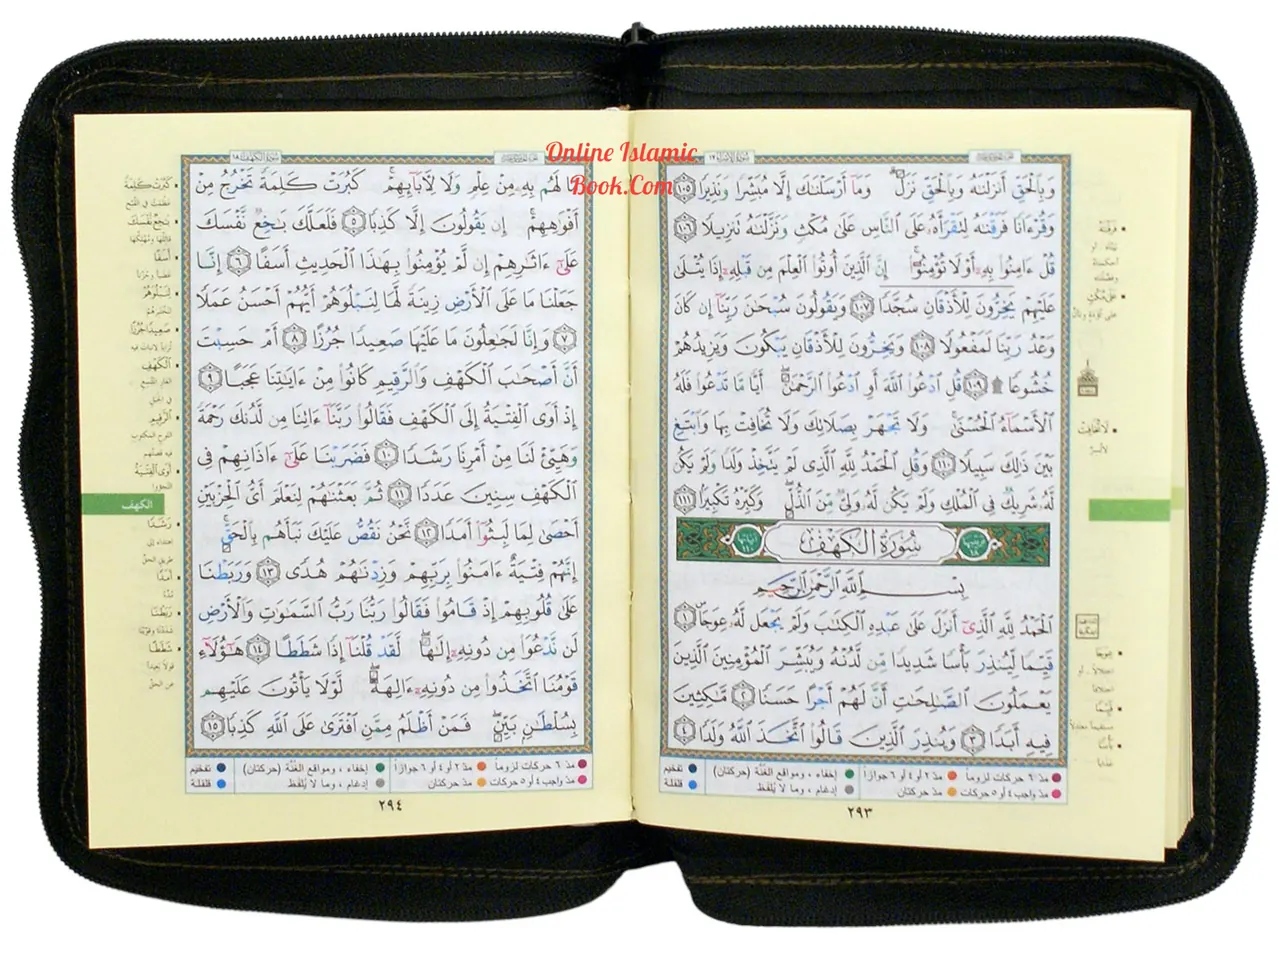 Online Islamic
Book.Com
سُورَةُ الإِسْرَاءِ ١٧
وَبِٱلْحَقِّ أَنزَلْنَـٰهُ وَبِٱلْحَقِّ نَزَلَ ۗ وَمَآ أَرْسَلْنَـٰكَ إِلَّا مُبَشِّرًا وَنَذِيرًا ١٠٥
وَقُرْءَانًا فَرَقْنَـٰهُ لِتَقْرَأَهُۥ عَلَى ٱلنَّاسِ عَلَىٰ مُكْثٍ وَنَزَّلْنَـٰهُ تَنزِيلًا ١٠٦
قُلْ ءَامِنُوا۟ بِهِۦٓ أَوْ لَا تُؤْمِنُوٓا۟ ۚ إِنَّ ٱلَّذِينَ أُوتُوا۟ ٱلْعِلْمَ مِن قَبْلِهِۦٓ إِذَا يُتْلَىٰ
عَلَيْهِمْ يَخِرُّونَ لِلْأَذْقَانِ سُجَّدًا ١٠٧ وَيَقُولُونَ سُبْحَـٰنَ رَبِّنَآ إِن كَانَ
وَعْدُ رَبِّنَا لَمَفْعُولًا ١٠٨ وَيَخِرُّونَ لِلْأَذْقَانِ يَبْكُونَ وَيَزِيدُهُمْ
خُشُوعًا ۩ ١٠٩ قُلِ ٱدْعُوا۟ ٱللَّهَ أَوِ ٱدْعُوا۟ ٱلرَّحْمَـٰنَ ۖ أَيًّا مَّا تَدْعُوا۟ فَلَهُ
ٱلْأَسْمَآءُ ٱلْحُسْنَىٰ ۚ وَلَا تَجْهَرْ بِصَلَاتِكَ وَلَا تُخَافِتْ بِهَا وَٱبْتَغِ
بَيْنَ ذَٰلِكَ سَبِيلًا ١١٠ وَقُلِ ٱلْحَمْدُ لِلَّهِ ٱلَّذِى لَمْ يَتَّخِذْ وَلَدًا وَلَمْ يَكُن
لَّهُۥ شَرِيكٌ فِى ٱلْمُلْكِ وَلَمْ يَكُن لَّهُۥ وَلِىٌّ مِّنَ ٱلذُّلِّ ۖ وَكَبِّرْهُ تَكْبِيرًۢا ١١١
سُورَةُ الكَهْفِ
بِسْمِ ٱللَّهِ ٱلرَّحْمَـٰنِ ٱلرَّحِيمِ
ٱلْحَمْدُ لِلَّهِ ٱلَّذِىٓ أَنزَلَ عَلَىٰ عَبْدِهِ ٱلْكِتَـٰبَ وَلَمْ يَجْعَل لَّهُۥ عِوَجَا ۜ ١
قَيِّمًا لِّيُنذِرَ بَأْسًا شَدِيدًا مِّن لَّدُنْهُ وَيُبَشِّرَ ٱلْمُؤْمِنِينَ ٱلَّذِينَ
يَعْمَلُونَ ٱلصَّـٰلِحَـٰتِ أَنَّ لَهُمْ أَجْرًا حَسَنًا ٢ مَّـٰكِثِينَ
فِيهِ أَبَدًا ٣ وَيُنذِرَ ٱلَّذِينَ قَالُوا۟ ٱتَّخَذَ ٱللَّهُ وَلَدًا ٤
مدّ ٦ حركات لزوماً مدّ ٢ أو ٤ أو ٦ جوازاً إخفاء، ومواقع الغُنَّة (حركتان) تفخيم
مدّ واجب ٤ أو ٥ حركات مدّ حركتان إدغام، وما لا يُلفَظ قلقلة
٢٩٣
سُورَةُ الكَهْفِ ١٨
مَّا لَهُم بِهِۦ مِنْ عِلْمٍ وَلَا لِـَٔابَآئِهِمْ ۚ كَبُرَتْ كَلِمَةً تَخْرُجُ مِنْ
أَفْوَٰهِهِمْ ۚ إِن يَقُولُونَ إِلَّا كَذِبًا ٥ فَلَعَلَّكَ بَـٰخِعٌ نَّفْسَكَ
عَلَىٰٓ ءَاثَـٰرِهِمْ إِن لَّمْ يُؤْمِنُوا۟ بِهَـٰذَا ٱلْحَدِيثِ أَسَفًا ٦ إِنَّا
جَعَلْنَا مَا عَلَى ٱلْأَرْضِ زِينَةً لَّهَا لِنَبْلُوَهُمْ أَيُّهُمْ أَحْسَنُ عَمَلًا
٧ وَإِنَّا لَجَـٰعِلُونَ مَا عَلَيْهَا صَعِيدًا جُرُزًا ٨ أَمْ حَسِبْتَ
أَنَّ أَصْحَـٰبَ ٱلْكَهْفِ وَٱلرَّقِيمِ كَانُوا۟ مِنْ ءَايَـٰتِنَا عَجَبًا ٩
إِذْ أَوَى ٱلْفِتْيَةُ إِلَى ٱلْكَهْفِ فَقَالُوا۟ رَبَّنَآ ءَاتِنَا مِن لَّدُنكَ رَحْمَةً
وَهَيِّئْ لَنَا مِنْ أَمْرِنَا رَشَدًا ١٠ فَضَرَبْنَا عَلَىٰٓ ءَاذَانِهِمْ فِى
ٱلْكَهْفِ سِنِينَ عَدَدًا ١١ ثُمَّ بَعَثْنَـٰهُمْ لِنَعْلَمَ أَىُّ ٱلْحِزْبَيْنِ
أَحْصَىٰ لِمَا لَبِثُوٓا۟ أَمَدًا ١٢ نَّحْنُ نَقُصُّ عَلَيْكَ نَبَأَهُم بِٱلْحَقِّ ۚ
إِنَّهُمْ فِتْيَةٌ ءَامَنُوا۟ بِرَبِّهِمْ وَزِدْنَـٰهُمْ هُدًى ١٣ وَرَبَطْنَا
عَلَىٰ قُلُوبِهِمْ إِذْ قَامُوا۟ فَقَالُوا۟ رَبُّنَا رَبُّ ٱلسَّمَـٰوَٰتِ وَٱلْأَرْضِ
لَن نَّدْعُوَا۟ مِن دُونِهِۦٓ إِلَـٰهًا ۖ لَّقَدْ قُلْنَآ إِذًا شَطَطًا ١٤ هَـٰٓؤُلَآءِ
قَوْمُنَا ٱتَّخَذُوا۟ مِن دُونِهِۦٓ ءَالِهَةً ۖ لَّوْلَا يَأْتُونَ عَلَيْهِم
بِسُلْطَـٰنٍۭ بَيِّنٍ ۖ فَمَنْ أَظْلَمُ مِمَّنِ ٱفْتَرَىٰ عَلَى ٱللَّهِ كَذِبًا ١٥
الكهف
مدّ ٦ حركات لزوماً مدّ ٢ أو ٤ أو ٦ جوازاً إخفاء، ومواقع الغُنَّة (حركتان) تفخيم
مدّ واجب ٤ أو ٥ حركات مدّ حركتان إدغام، وما لا يُلفَظ قلقلة
٢٩٤